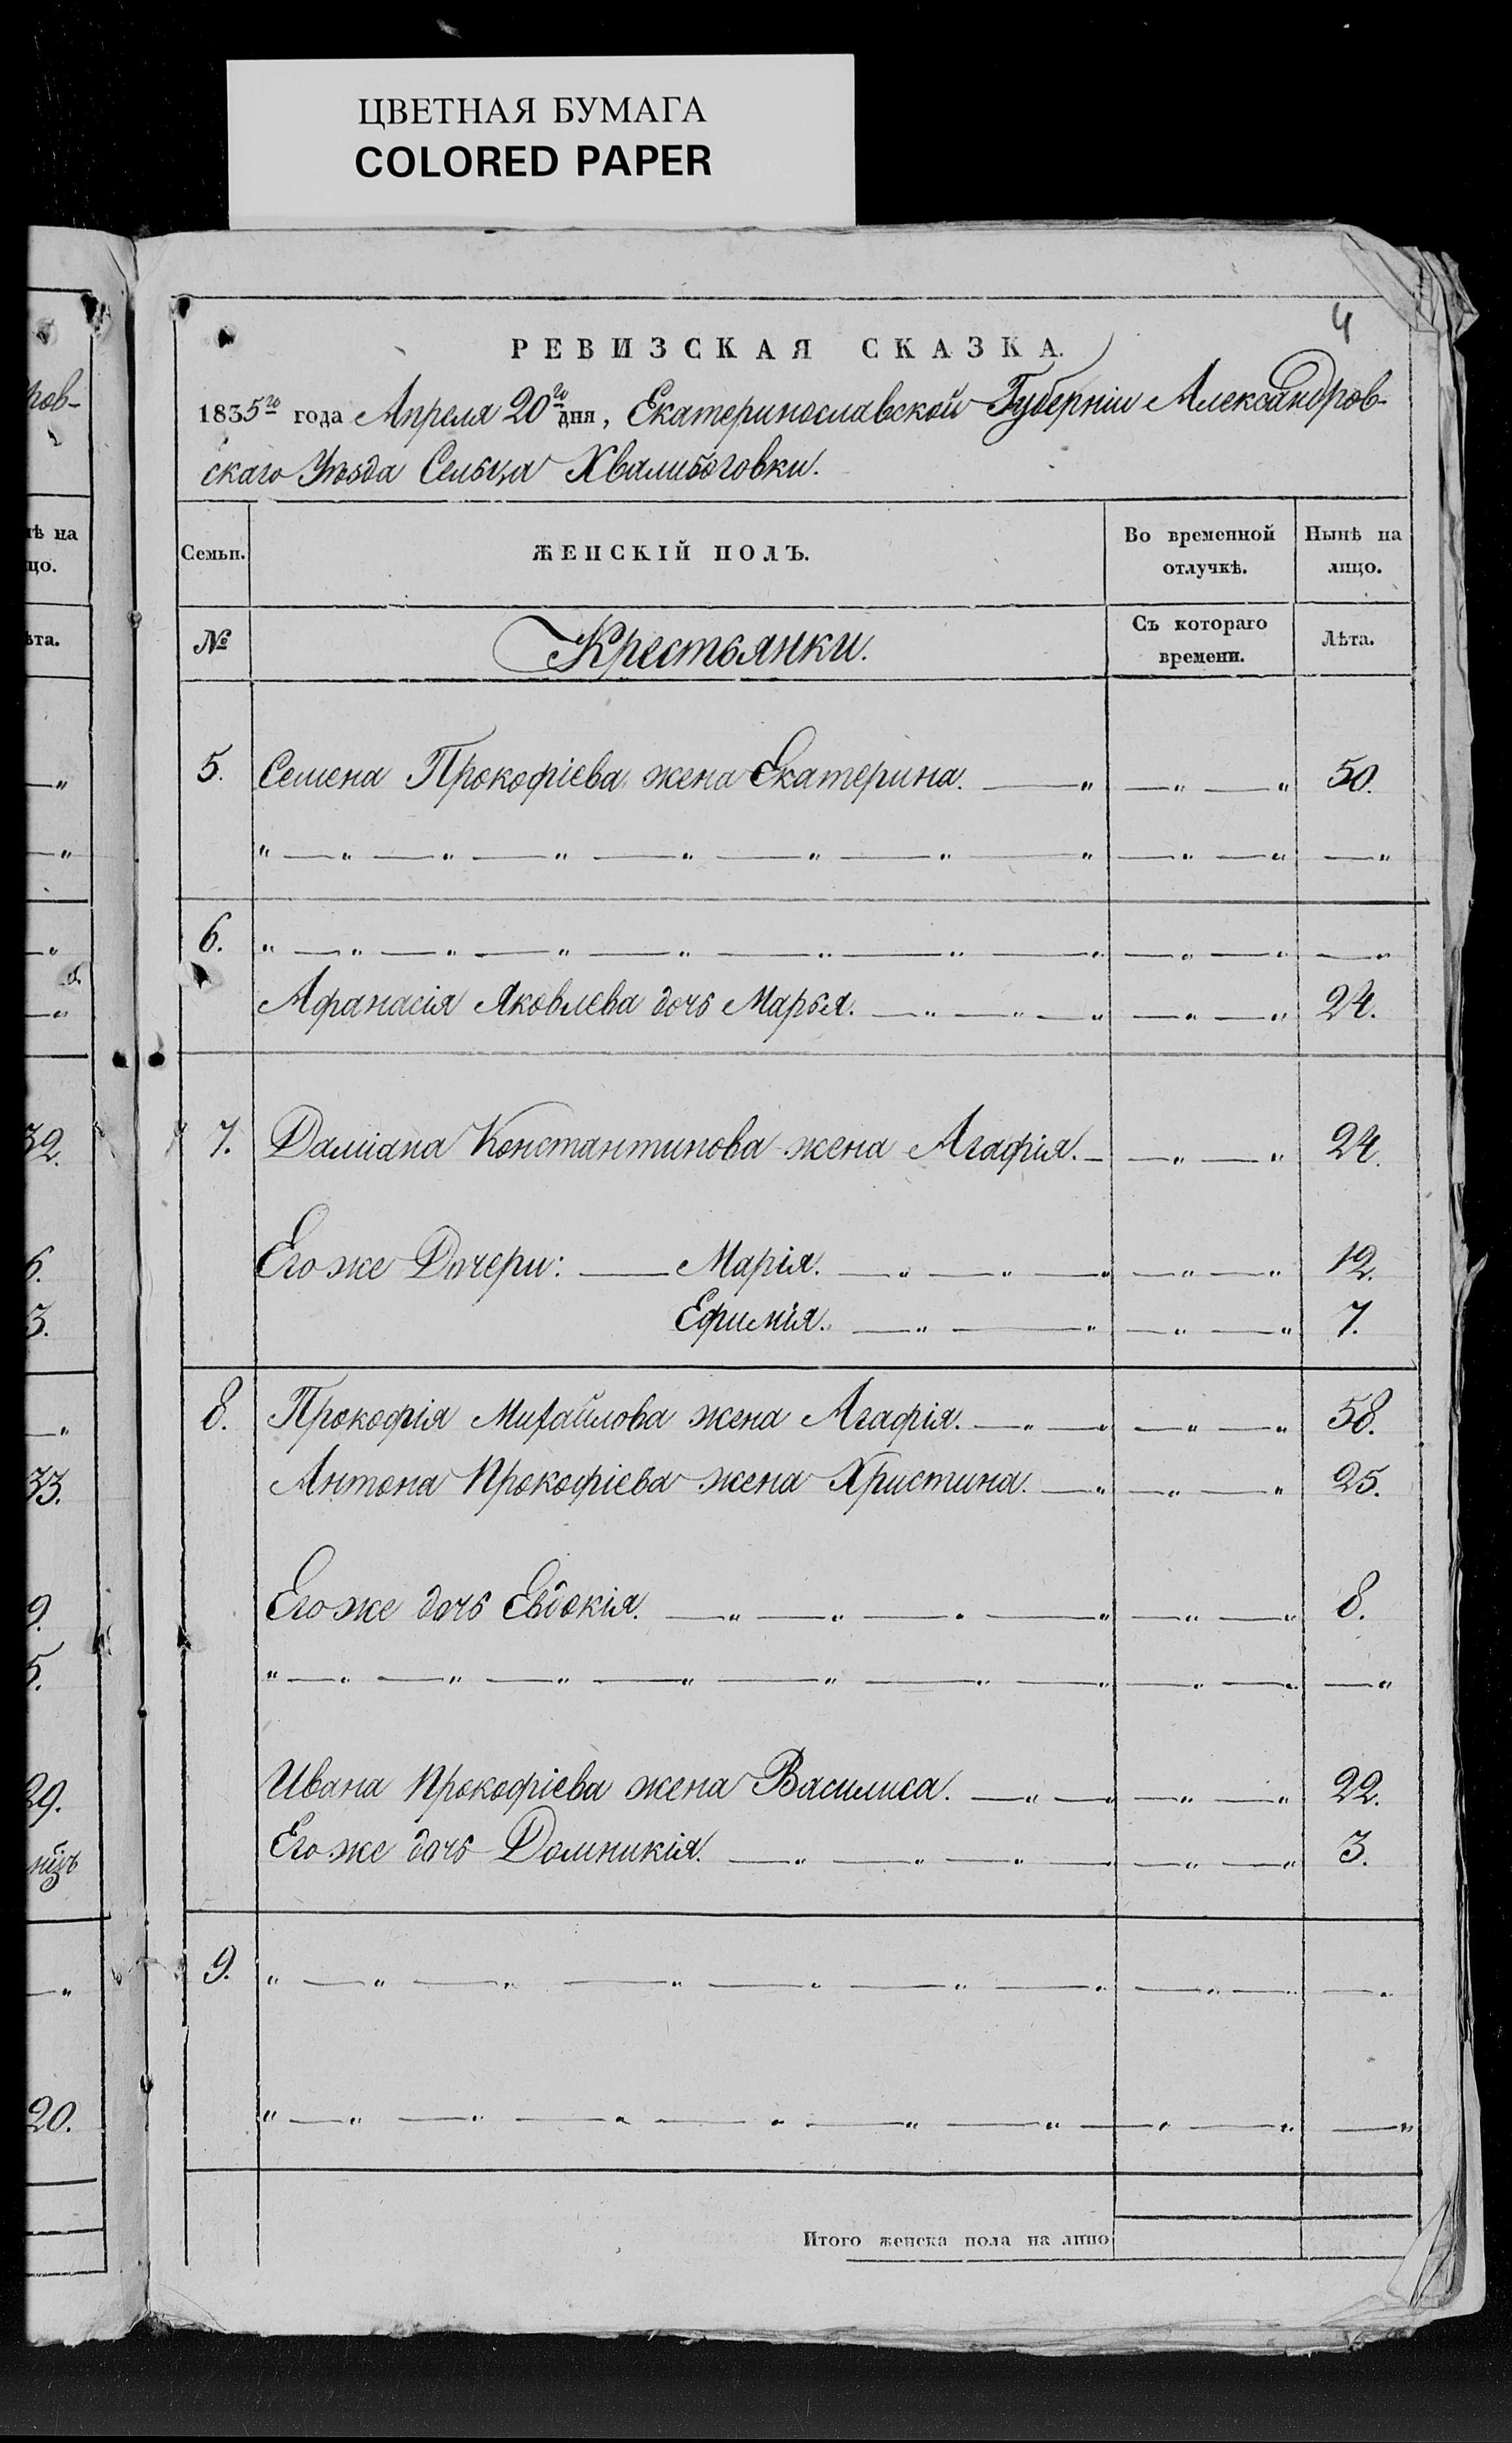 ЦВЕТНАЯ БУМАГА
COLORED PAPER
4
РЕВИЗСКАЯ СКАЗКА.
1835го года Апреля 20го дня, Екатеринославской Губерніи Александров-
скаго Уѣзда Сельца Хвалибоговки.
Семьи. ЖЕНСКІЙ ПОЛЪ. Во временной отлучкѣ. Нынѣ на лицо.
№ Крестьянки. Съ котораго времени. Лѣта.
5. Семена Прокофіева жена Екатерина. 50.
6.
Афанасія Яковлева дочь Марья. 24.
7. Даміана Константинова жена Агафія. 24.
Его же Дочери: Марія. 12.
Ефимія. 7.
8. Прокофія Михайлова жена Агафія. 58.
Антона Прокофіева жена Христина. 25.
Его же дочь Евдокія. 8.
Ивана Прокофіева жена Василиса. 22.
Его же дочь Домникія. 3.
9.
Итого женска пола на лицо